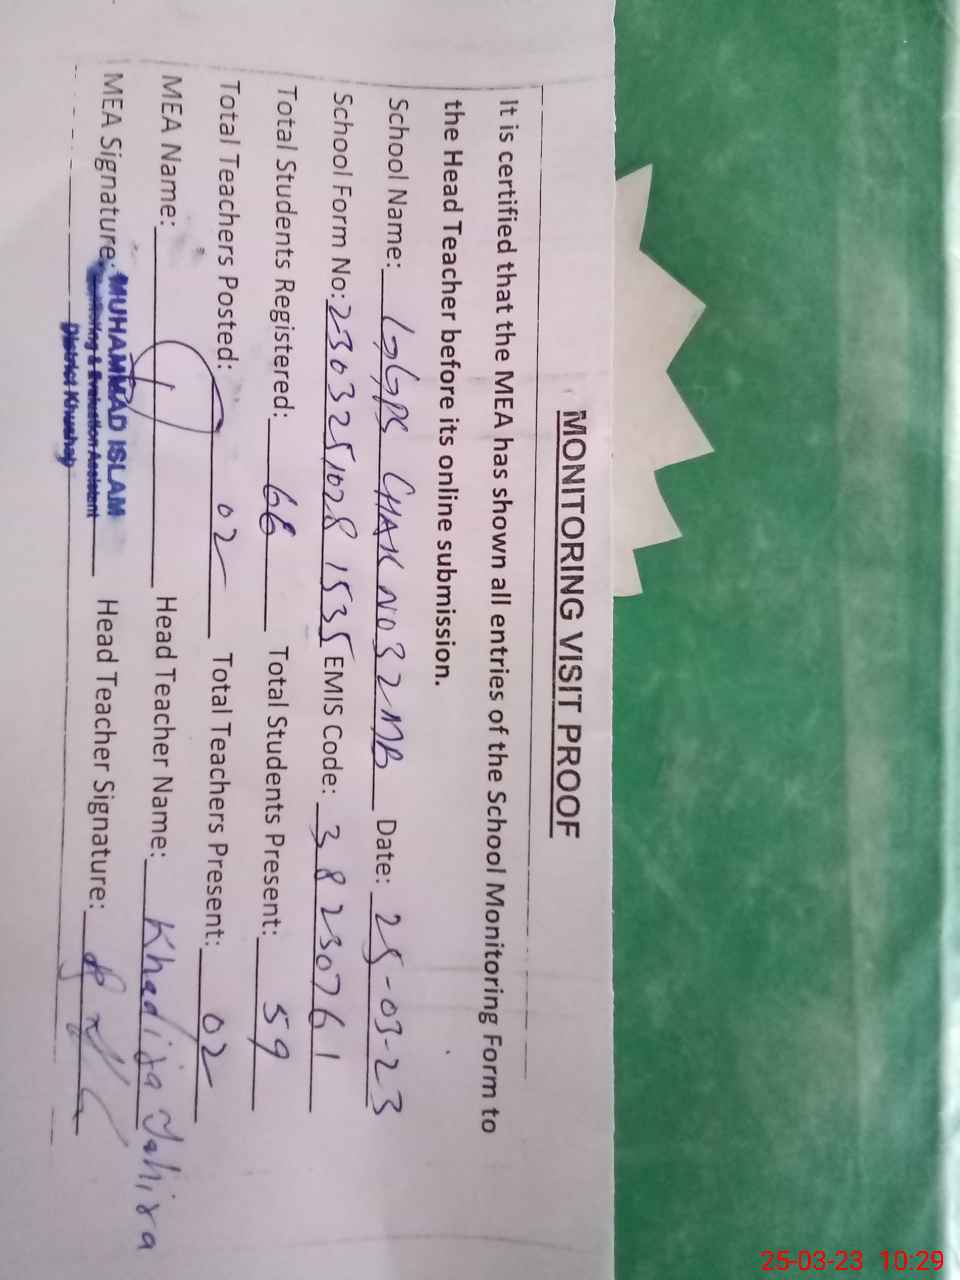 MONITORING VISIT PROOF
It is certified that the MEA has shown all entries of the School Monitoring Form to
the Head Teacher before its online submission.
School Name: GGPS CHAK NO 32MB Date: 25-03-23
School Form No: 2303251028 1535 EMIS Code: 38230761
Total Students Registered: 66 Total Students Present: 59
Total Teachers Posted: 02 Total Teachers Present: 02
MEA Name: Head Teacher Name: Khadija Tahira
MEA Signature: MUHAMMAD ISLAM Head Teacher Signature:
Monitoring & Evaluation Assistent
District Khushab
25-03-23 10:29